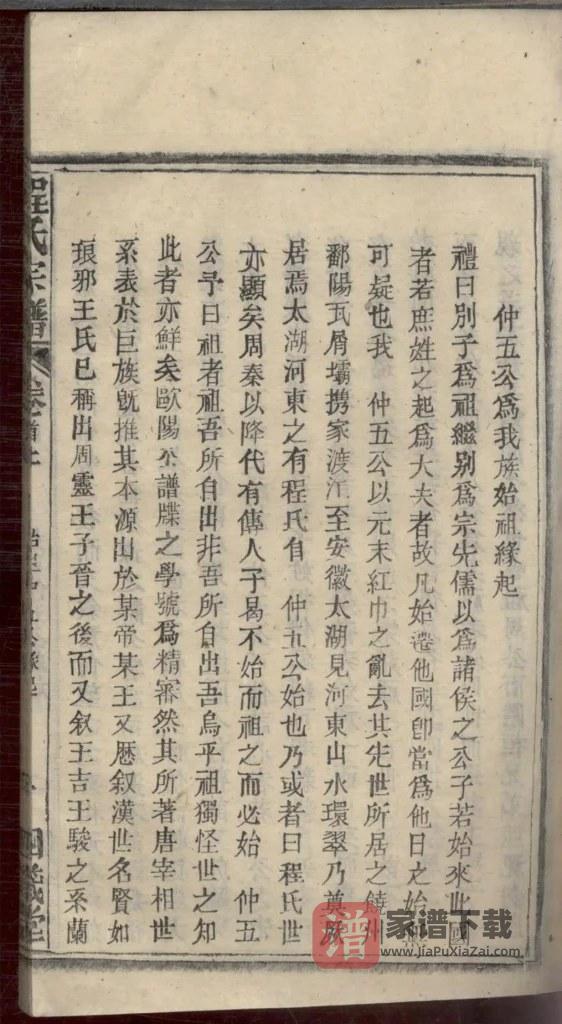 仲五公爲我族始祖緣起
禮曰別子爲祖繼别爲宗先儒以爲諸侯之公子若始來此國
者若庶姓之起爲大夫者故凡始遷他國卽當爲他日之始祖
可疑也我 仲五公以元末紅巾之亂去其先世所居之饒州
鄱陽瓦屑壩携家渡江至安徽太湖見河東山水環翠乃奠厥
居焉太湖河東之有程氏自 仲五公始也乃或者曰程氏世
亦顯矣周秦以降代有傳人子曷不始而祖之而必始 仲五
公予曰祖者祖吾所自出非吾所自出吾烏乎祖獨怪世之知
此者亦鮮矣歐陽公譜牒之學號爲精審然其所著唐宰相世
系表於巨族旣推其本源出於某帝某王又歷叙漢世名賢如
琅邪王氏已稱出周靈王子晉之後而又叙王吉王駿之系蘭
程氏宗譜
卷首上
譜
家谱下载
www.jiaPuXiaZai.com